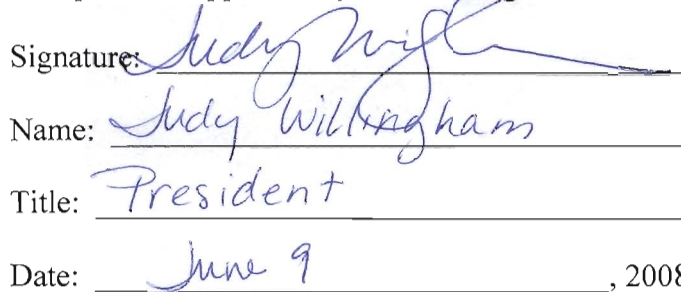 Signature: Judy
Name: Judy Willingham
Title: President
Date: June 9, 2008